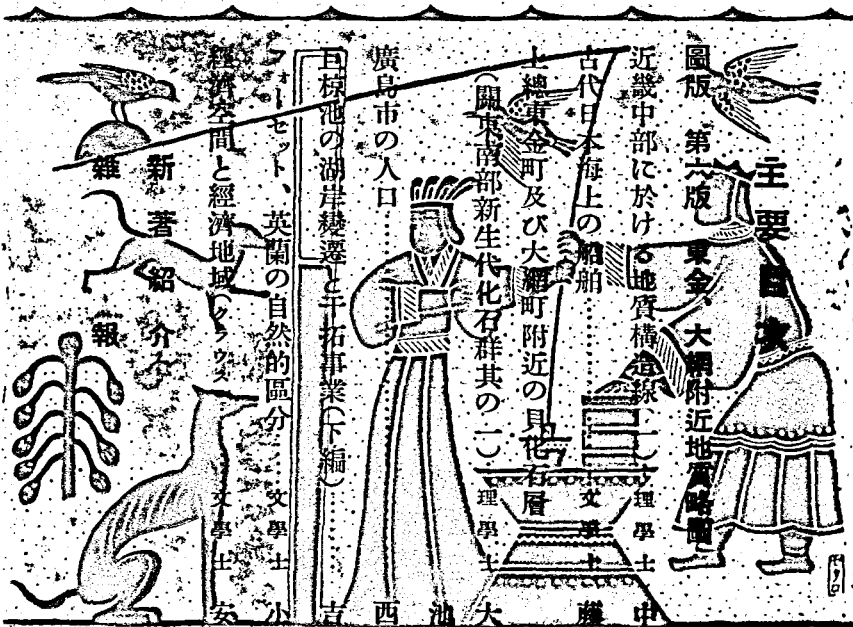 主要目次
圖版 第六版 東金、大網附近地質略圖
近畿中部に於ける地質構造線(一) 理學士 中
古代日本海上の船舶…… 文學士 藤
上總東金町及び大網町附近の貝化石層
(關東南部新生代化石群其の一) 理學士 大
池
廣島市の人口…… 西
巨椋池の湖岸變遷と干拓事業(下編)…… 吉
フォーセット、英蘭の自然的區分… 文學士 小
經濟空間と經濟地域(クラウス 文學士 安
新著紹介
雜報